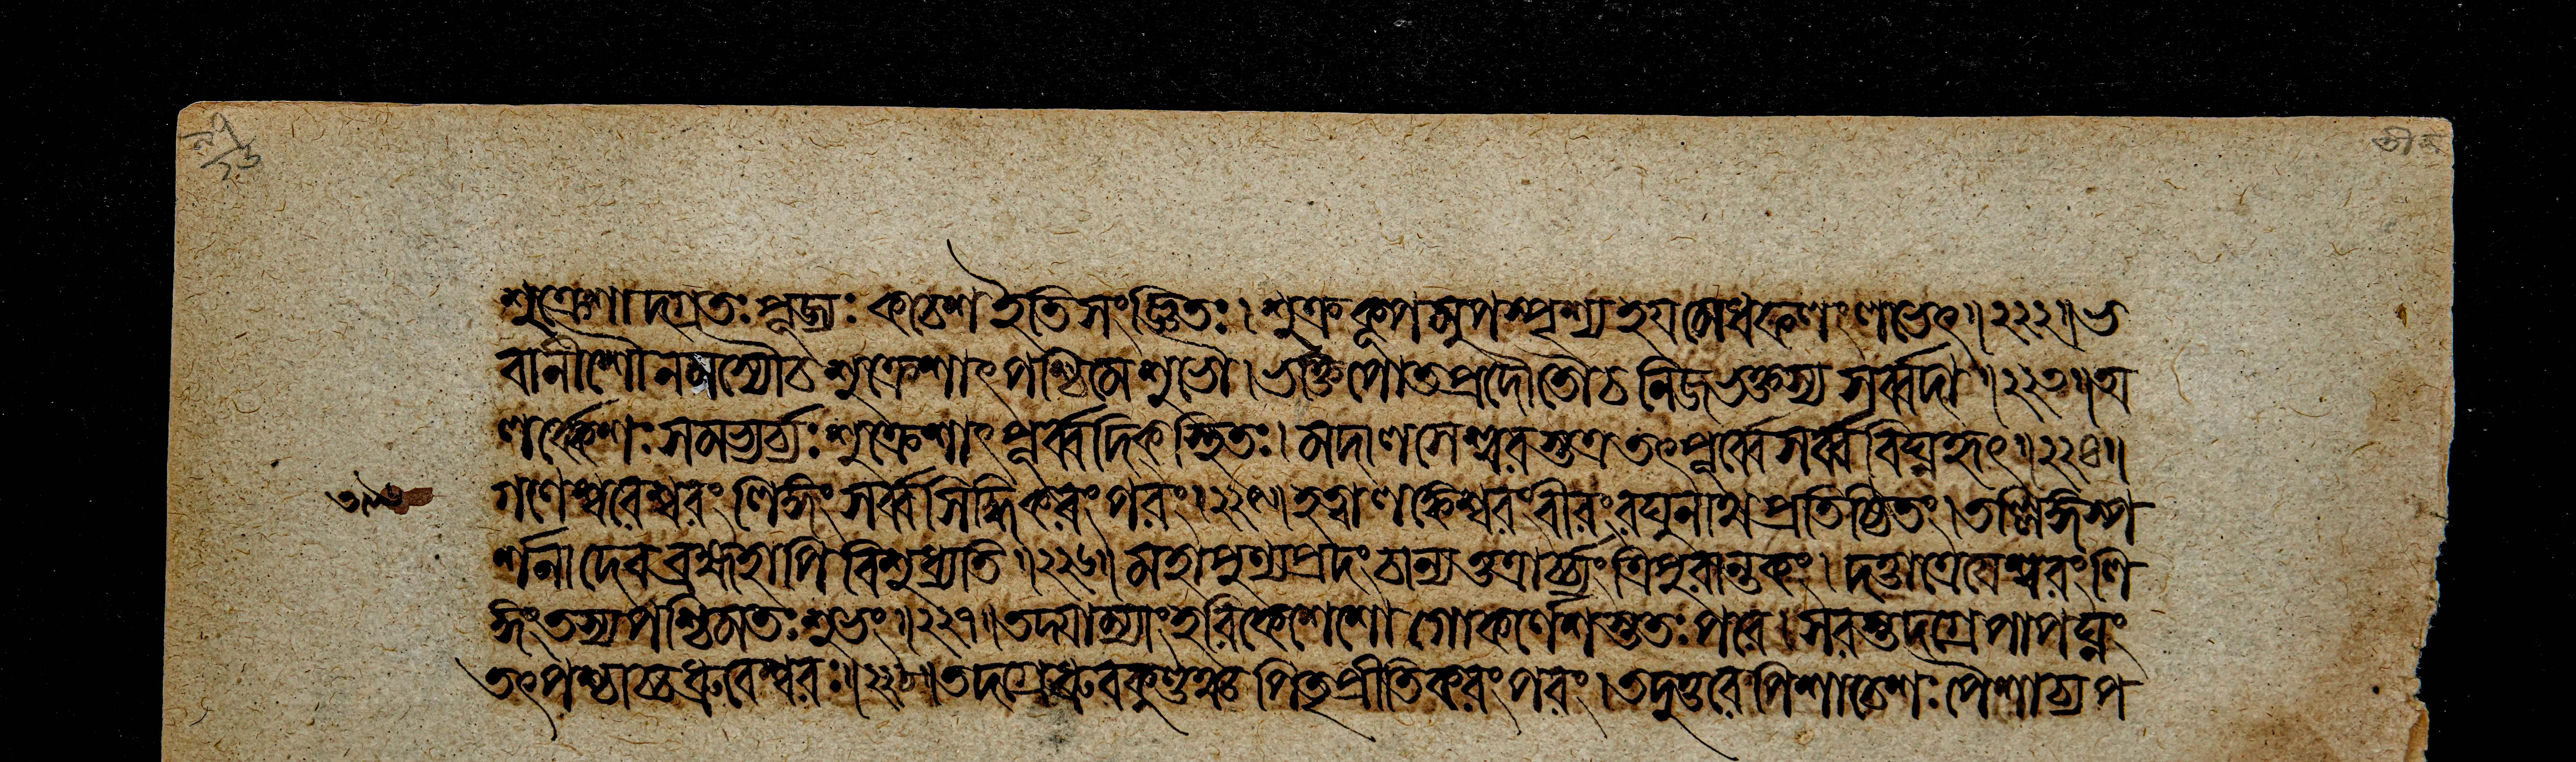 শুক্রেশাদগ্রতঃ পূজ্যঃ কচেশ ইতি সংজ্ঞিতঃ। শুক্রকূপমুপস্পৃশ্য হয়মেধফলং লভেৎ॥২২২॥ ভ
বানীশৌ নমস্যৌ চ শুক্রেশাৎ পশ্চিমে শুভৌ। ভক্তপোতপ্রদৌ তৌ চ নিজভক্তস্য সর্ব্বদা॥২২৩॥ অ
লর্কেশঃ সমভ্যর্চ্যঃ শুক্রেশাৎ পূর্ব্বদিক্স্থিতঃ। মদালসেশ্বরস্তত্র তৎপূর্ব্বে সর্ব্ববিঘ্নহৃৎ॥২২৪॥
গণেশ্বরেশ্বরং লিঙ্গং সর্ব্বসিদ্ধিকরং পরং।২২৫॥ হত্বা লঙ্কেশ্বরং বীরং রঘুনাথপ্রতিষ্ঠিতং। তল্লিঙ্গস্প
র্শনাদেব ব্রহ্মহাপি বিশুধ্যতি॥২২৬॥ মহাপুণ্যপ্রদং চান্যত্তত্রার্চ্চ্যং ত্রিপুরান্তকং। দত্তাত্রেয়েশ্বরং লি
ঙ্গং তস্য পশ্চিমতঃ শুভং॥২২৭॥ তদ্যাম্যাং হরিকেশেশো গোকর্ণেশস্ততঃ পরে। সরস্তদগ্রে পাপঘ্নং
তৎপশ্চাচ্চ ধ্রুবেশ্বরঃ॥২২৮॥ তদগ্রে ধ্রুবকুণ্ডঞ্চ পিতৃপ্রীতিকরং পরং। তদুত্তরে পিশাচেশঃ পৈশাচ্যপ